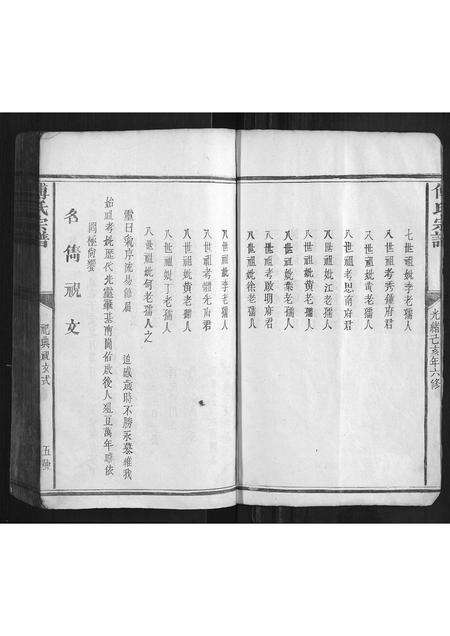 傅氏宗譜
光緒己亥年六修
七世祖妣李老孺人
八世祖考秀鍾府君
八世祖妣黄老孺人
八世祖考思南府君
八世祖妣江老孺人
八世祖妣黄老孺人
八世祖妣葉老孺人
八世祖考啟明府君
八世祖妣徐老孺人
八世祖妣李老孺人
八世祖考 先府君
八世祖妣黄老孺人
八世祖妣丁老孺人
八世祖妣何老孺人之
靈曰氣序流易 追感歲時不勝永慕維我
始祖考妣歷代先靈肇基南 佑啟後人俎豆萬年 依
罔極尚饗
名 祝文
傅氏宗譜
祀典祝文式
五